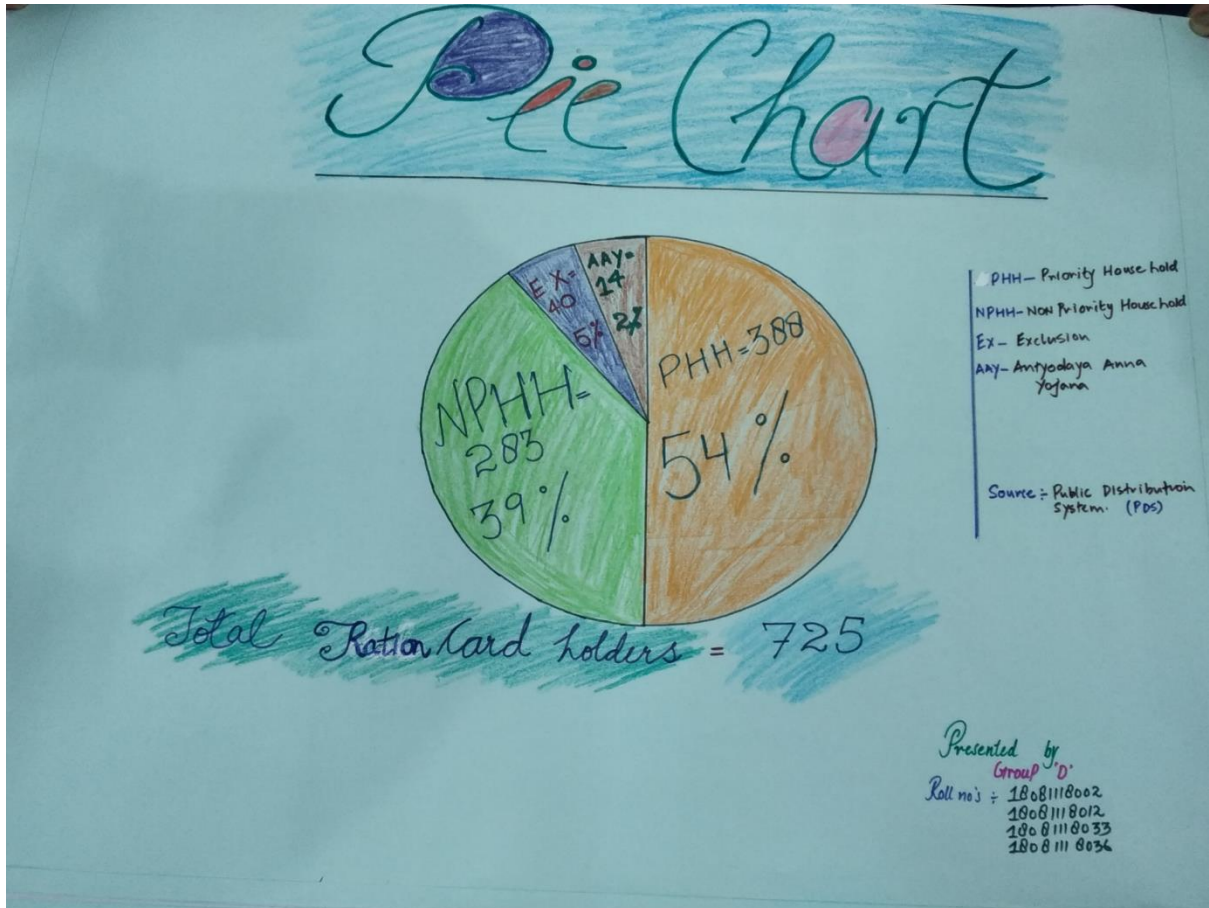 Pie Chart
AAY=
14
2%
EX=
40
5%
PHH=388
54%
NPHH=
283
39%
PHH- Priority House hold
NPHH- NON Priority House hold
Ex- Exclusion
AAY- Antyodaya Anna
Yojana
Source:- Public Distribution
System. (PDS)
Total Ration Card holders = 725
Presented by
Group 'D'
Roll no's :- 18081118002
18081118012
18081118033
18081118036